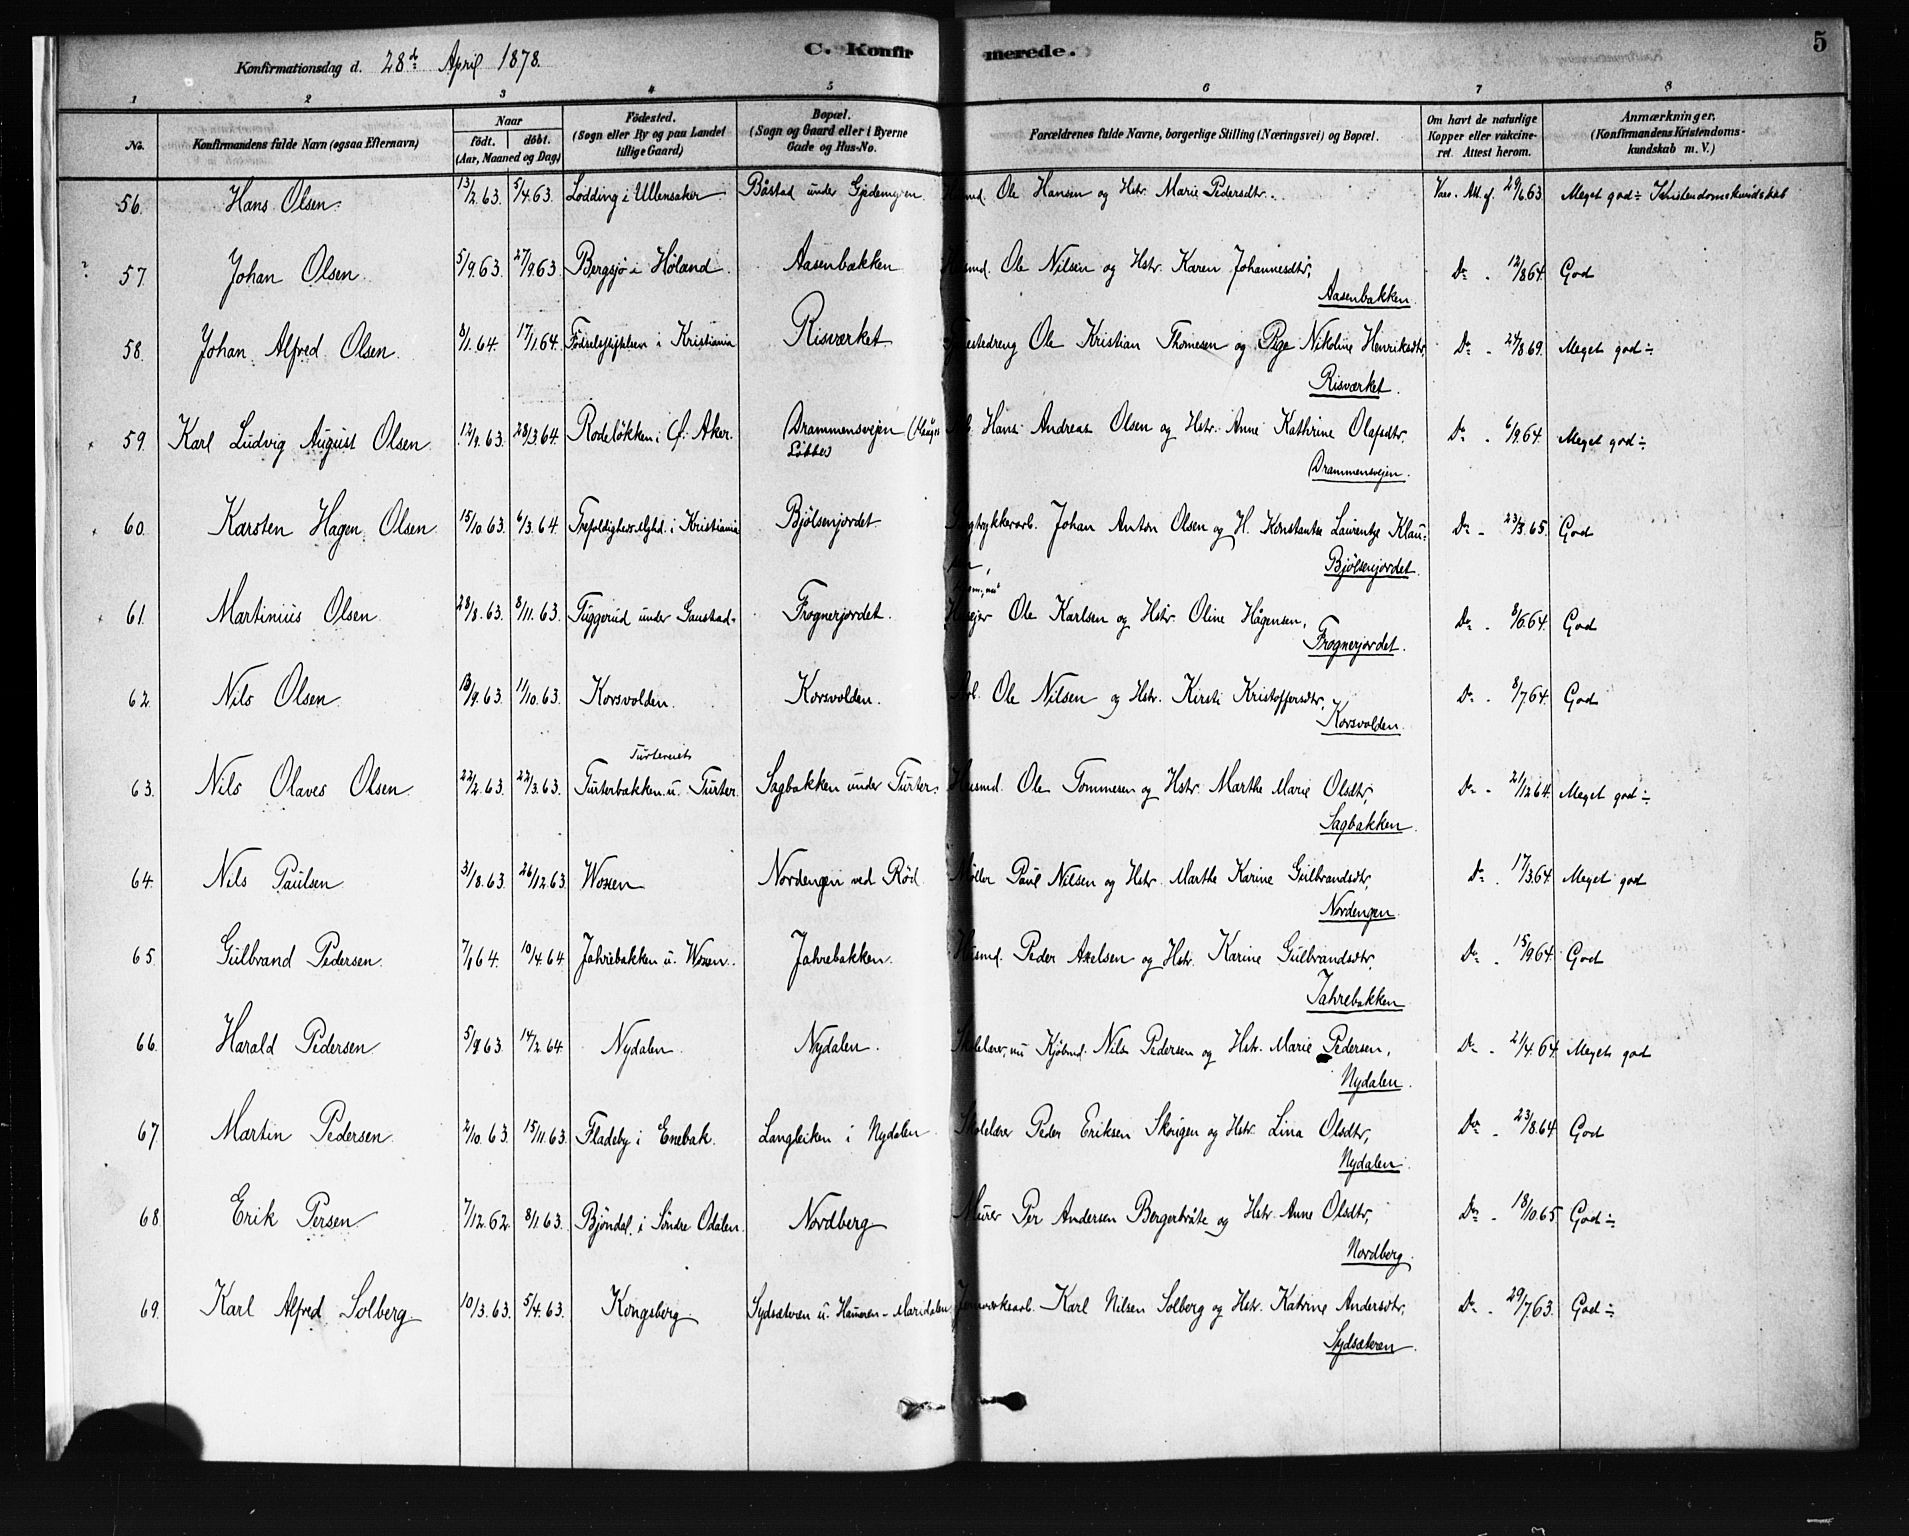 C. Konfirmerede. 5
Konfirmationsdag d. 28de April 1878.
1 2 3 4 5 6 7 8
No. Konfirmandens fulde Navn (ogsaa Efternavn) Naar født. døbt. (Aar, Maaned og Dag) Fødested. (Sogn eller By og paa Landet tillige Gaard) Bopæl. (Sogn og Gaard eller i Byerne Gade og Hus-No. Forældrenes fulde Navne, borgerlige Stilling (Næringsvei) og Bopæl. Om havt de naturlige Kopper eller vakcineret. Attest herom. Anmærkninger. (Konfirmandens Kristendomskundskab m. V.)
56. Hans Olsen 13/2.63. 5/4.63. Lødding i Ullensaker Båstad under Gjedemyren Husmd. Ole Hansen og Hstr. Marie Pedersdtr. Vacc. Att. af. 29/6.63. Meget god ÷ Kristendomskundskab
57. Johan Olsen 5/9.63. 27/9.63 Bergsjø i Høland. Aasenbakken Husmd. Ole Nilsen og Hstr. Karen Johannesdtr,
Aasenbakken. Do - 12/8.64. God
58. Johan Alfred Olsen. 8/1.64. 17/1.64. Fødselsstiftelsen i Kristiania Risværket Tjenestedreng Ole Kristian Thomesen og Pige Nikoline Henriksdtr,
Risværket. Do - 24/8.69. Meget god ÷
59. Karl Ludvig August Olsen 12/9.63. 28/3.64. Rodeløkken i Ø. Aker. Drammensvejen
Løkke Arb. Hans Andreas Olsen og Hstr. Anne Kathrine Olafsdtr.
Drammensvejen. Do - 6/9.64. Meget god ÷
60. Karsten Hagen Olsen 15/10.63. 6/3.64. Trefoldigheds Mghd. i Kristiania Bjølsenjordet Johan Anton Olsen og H. Konstantse Laurentze
Bjølsenjordet. Do - 23/3.65. God
61. Martinius Olsen 28/8.63. 8/11.63. Tuggerud under Gaustad. Frognerjordet. Husejer Ole Karlsen og Hstr. Oline Hågensen,
Frognerjordet. Do - 8/6.64. God
62. Nils Olsen 13/9.63. 11/10.63. Korsvolden. Korsvolden. Arb. Ole Nilsen og Hstr. Kirsti Kristoffersdtr,
Korsvolden. Do - 8/7.64. God
Turtereiets
63. Nils Olaves Olsen 22/2.63. 22/3.63. Turterbakken u. Turter. Sagbakken under Turter. Husmd. Ole Tommesen og Hstr. Marthe Marie Olsdtr,
Sagbakken. Do - 21/12.64. Meget god ÷
64. Nils Paulsen 31/8.63. 26/12.63. Woxen Nordengen ved Rød. Møller Paul Nilsen og Hstr. Marthe Karine Gulbrandsdtr,
Nordengen. Do - 17/3.64. Meget god
65. Gulbrand Pedersen. 7/1.64. 10/4.64. Jahrebakken u. Woxen. Jahrebakken. Husmd. Peder Axelsen og Hstr. Karine Gulbrandsdtr,
Jahrebakken Do - 15/9.64. God
66. Harald Pedersen 5/9.63. 14/2.64. Nydalen. Nydalen. Skolelærer, nu Kjøbmd. Nils Pedersen og Hstr. Marie Pedersen,
Nydalen. Do - 21/4.64. Meget god
67. Martin Pedersen. 2/10.63. 15/11.63. Fladeby i Enebak. Langleiken i Nydalen Skolelærer Peder Eriksen Skrugen og Hstr. Lina Olsdtr,
Nydalen. Do - 23/8.64. God
68. Erik Persen 7/12.62. 8/1.63. Bjøndal i Søndre Odalen. Nordberg Murer Per Andersen Bergerbråte og Hstr. Anne Olsdtr,
Nordberg. Do - 18/10.65. God ÷
69. Karl Alfred Solberg 10/3.63. 5/4.63. Kongsberg Sydsæteren u. Hammeren - Maridalen Jernværksarb. Karl Nilsen Solberg og Hstr. Katrine Andersdtr,
Sydsæteren. Do - 29/7.63. God ÷